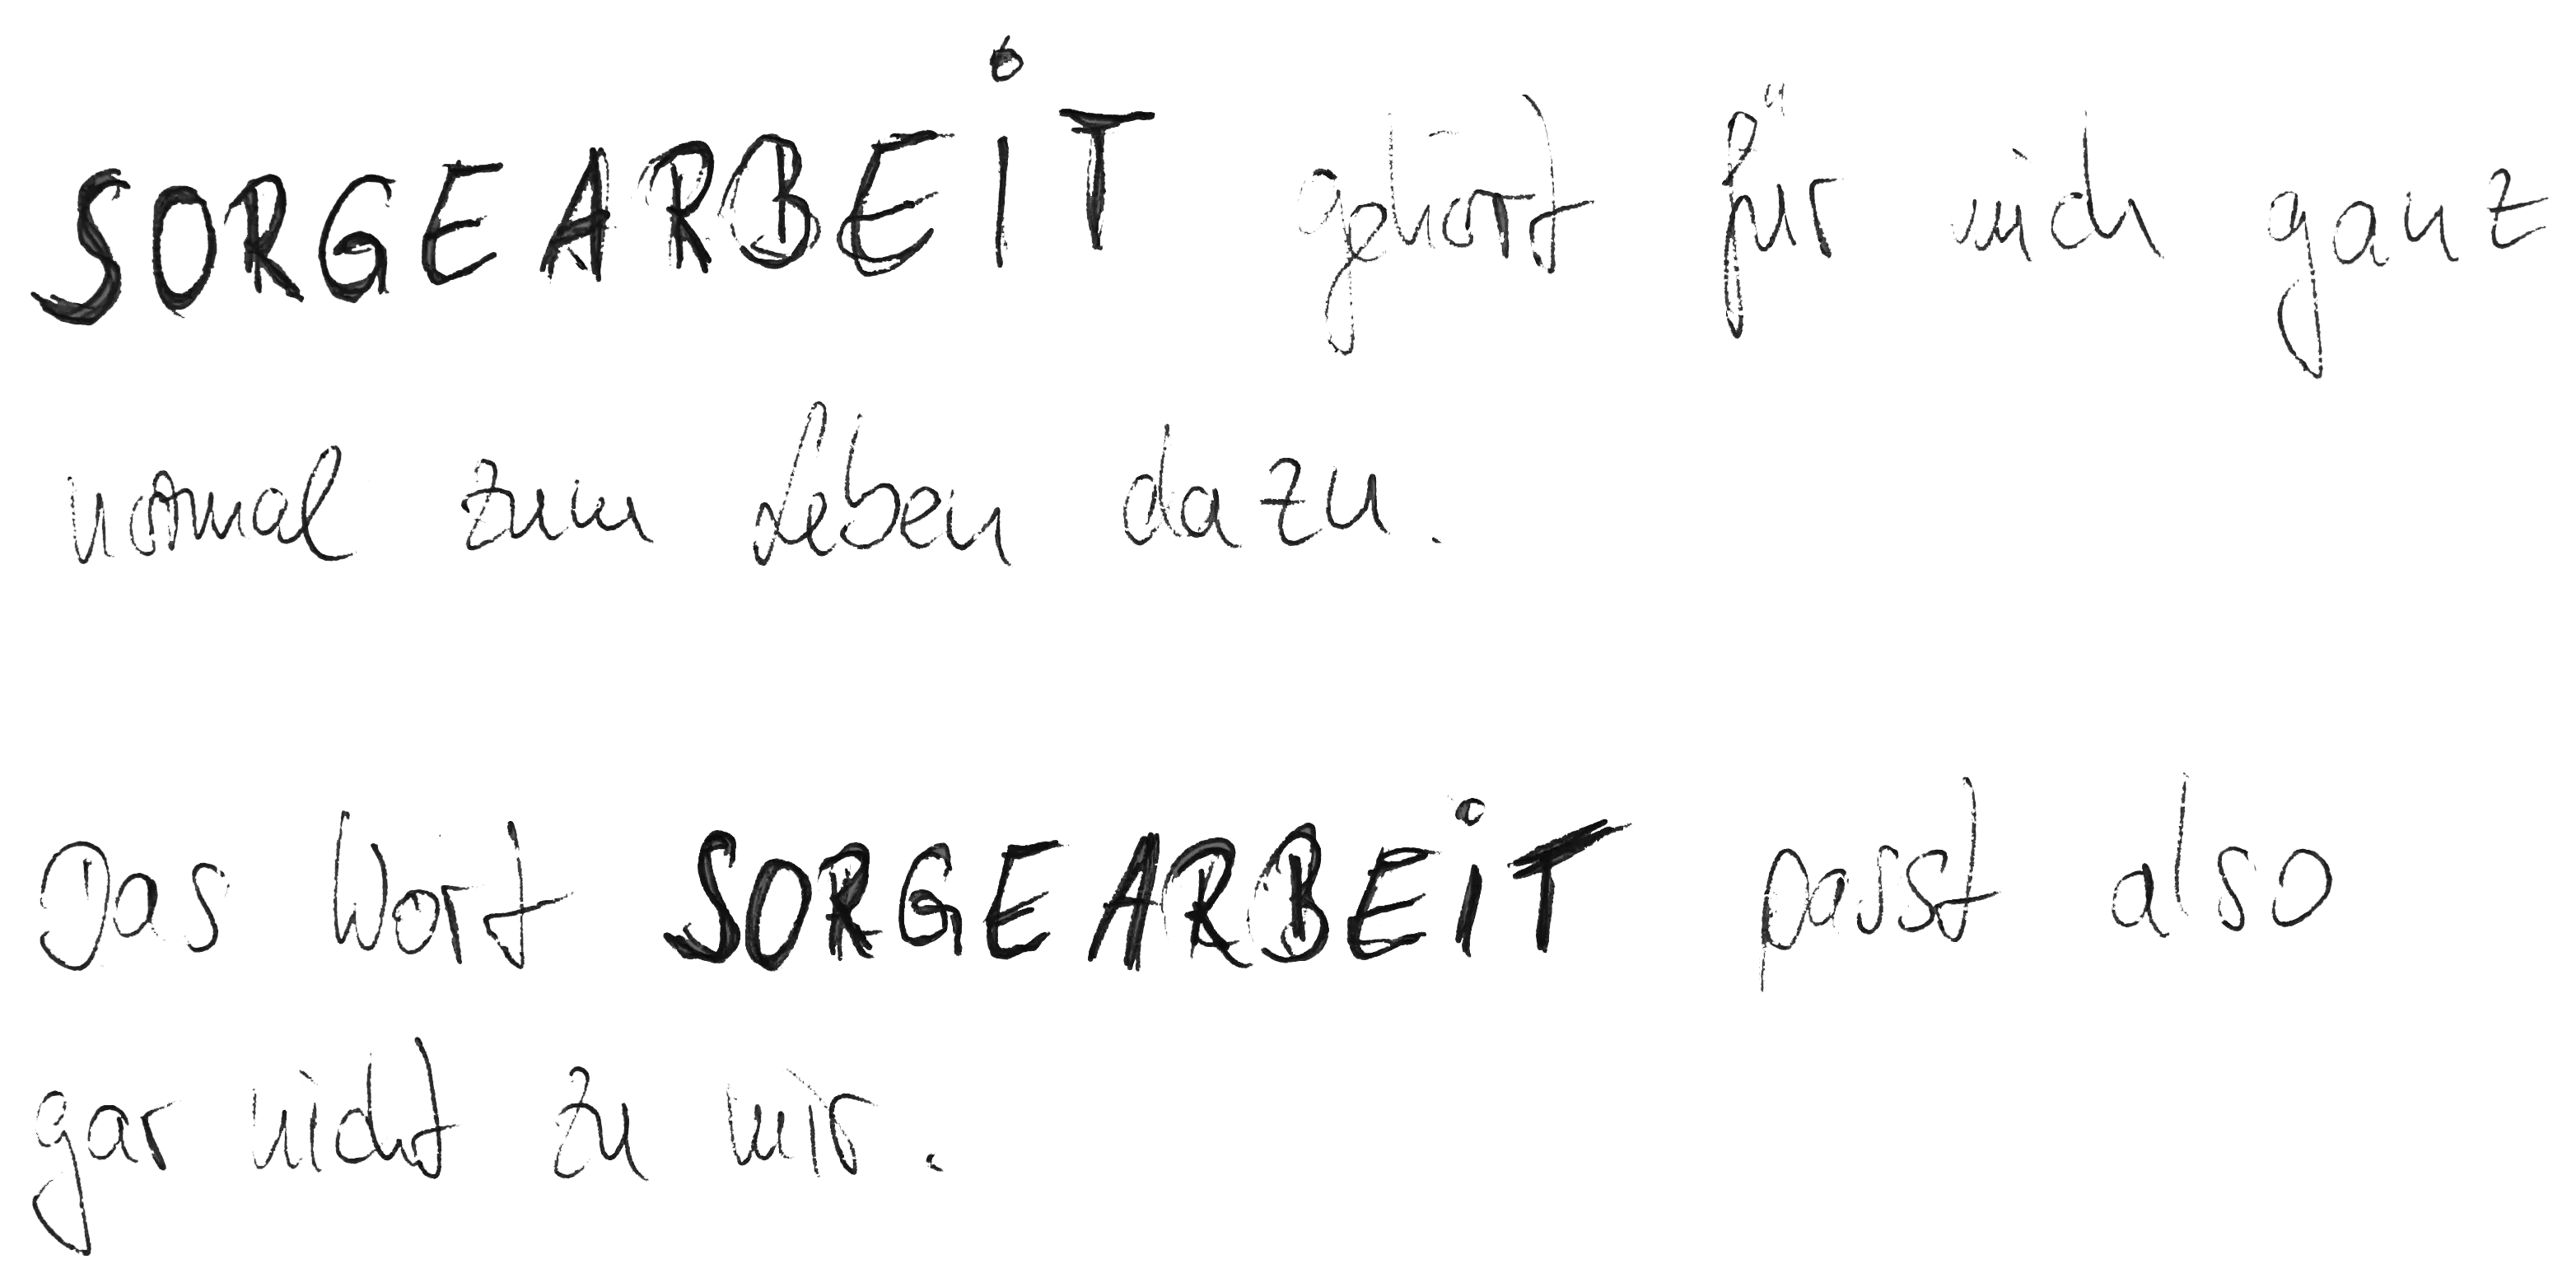 SORGEARBEiT gehört für mich ganz
normal zum Leben dazu.
Das Wort SORGEARBEiT passt also
gar nicht zu mir.